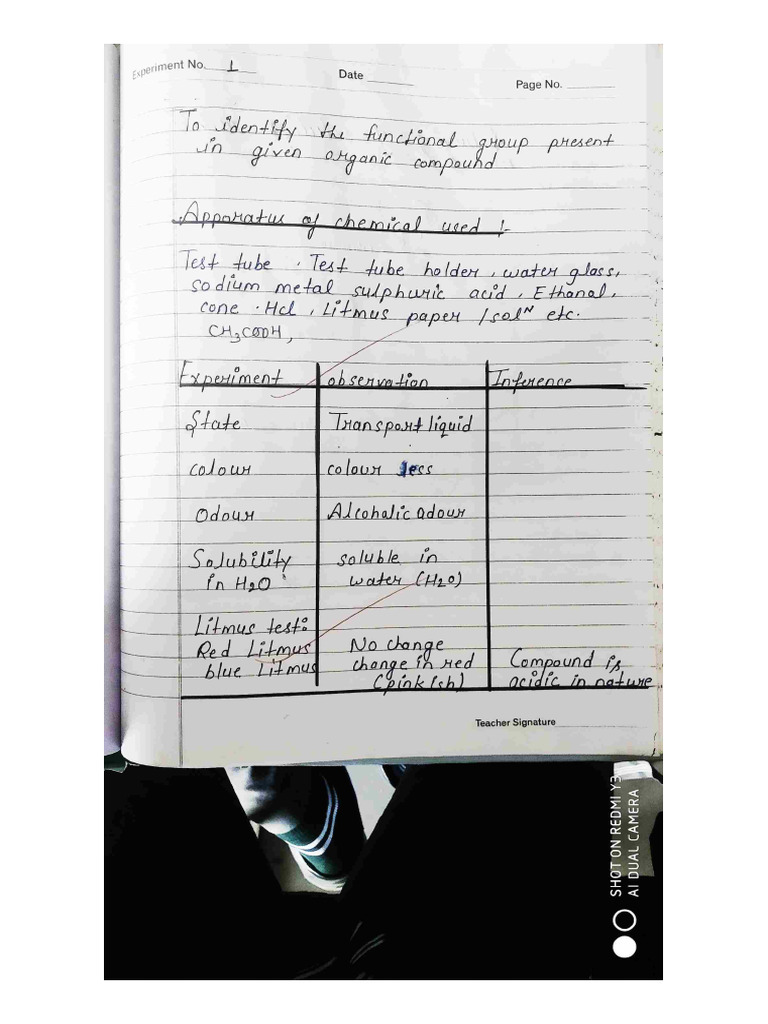 Experiment No. 1
Date
Page No.
To identify the functional group present
in given organic compound
Apparatus of chemical used :-
Test tube, Test tube holder, water glass,
sodium metal sulphuric acid, Ethanal,
conc. Hcl, Litmus paper /solN etc.
CH3COOH,
Experiment observation Inference
State Transport liquid
colour colour less
Odour Alcoholic adour
Solubility soluble in
in H2O water (H2O)
Litmus test:
Red Litmus No change
blue Litmus change in red Compound is
(pinkish) acidic in nature
Teacher Signature
SHOT ON REDMI Y3
AI DUAL CAMERA